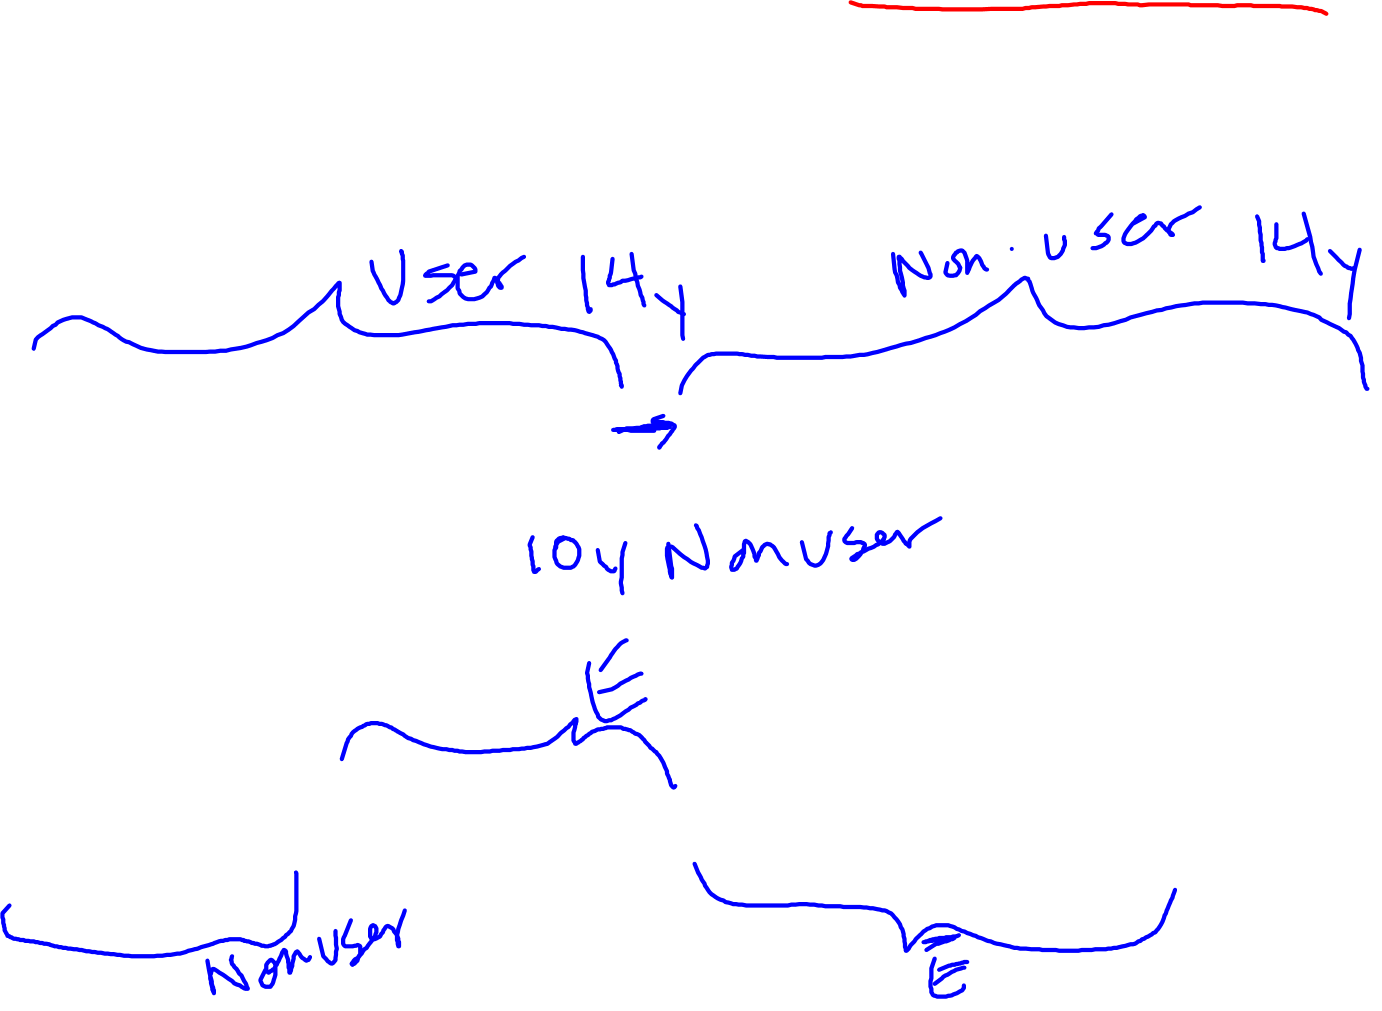 User 14y Non-user 14y
10y Nonuser
E
Nonuser
E̅